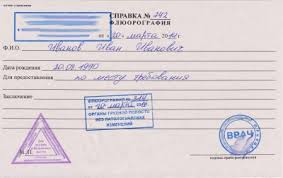 СПРАВКА № 242
ФЛЮОРОГРАФИЯ
«20» марта 2014г.
Ф.И.О. Иванов Иван Иванович
Дата рождения 20.03.1990
Для предоставления по месту требования
Заключение
ФЛЮОРОГРАФИЯ № 314
ОРГАНЫ ГРУДНОЙ ПОЛОСТИ
БЕЗ ПАТОЛОГИЧЕСКИХ
ИЗМЕНЕНИЙ
ВРАЧ
М.П.